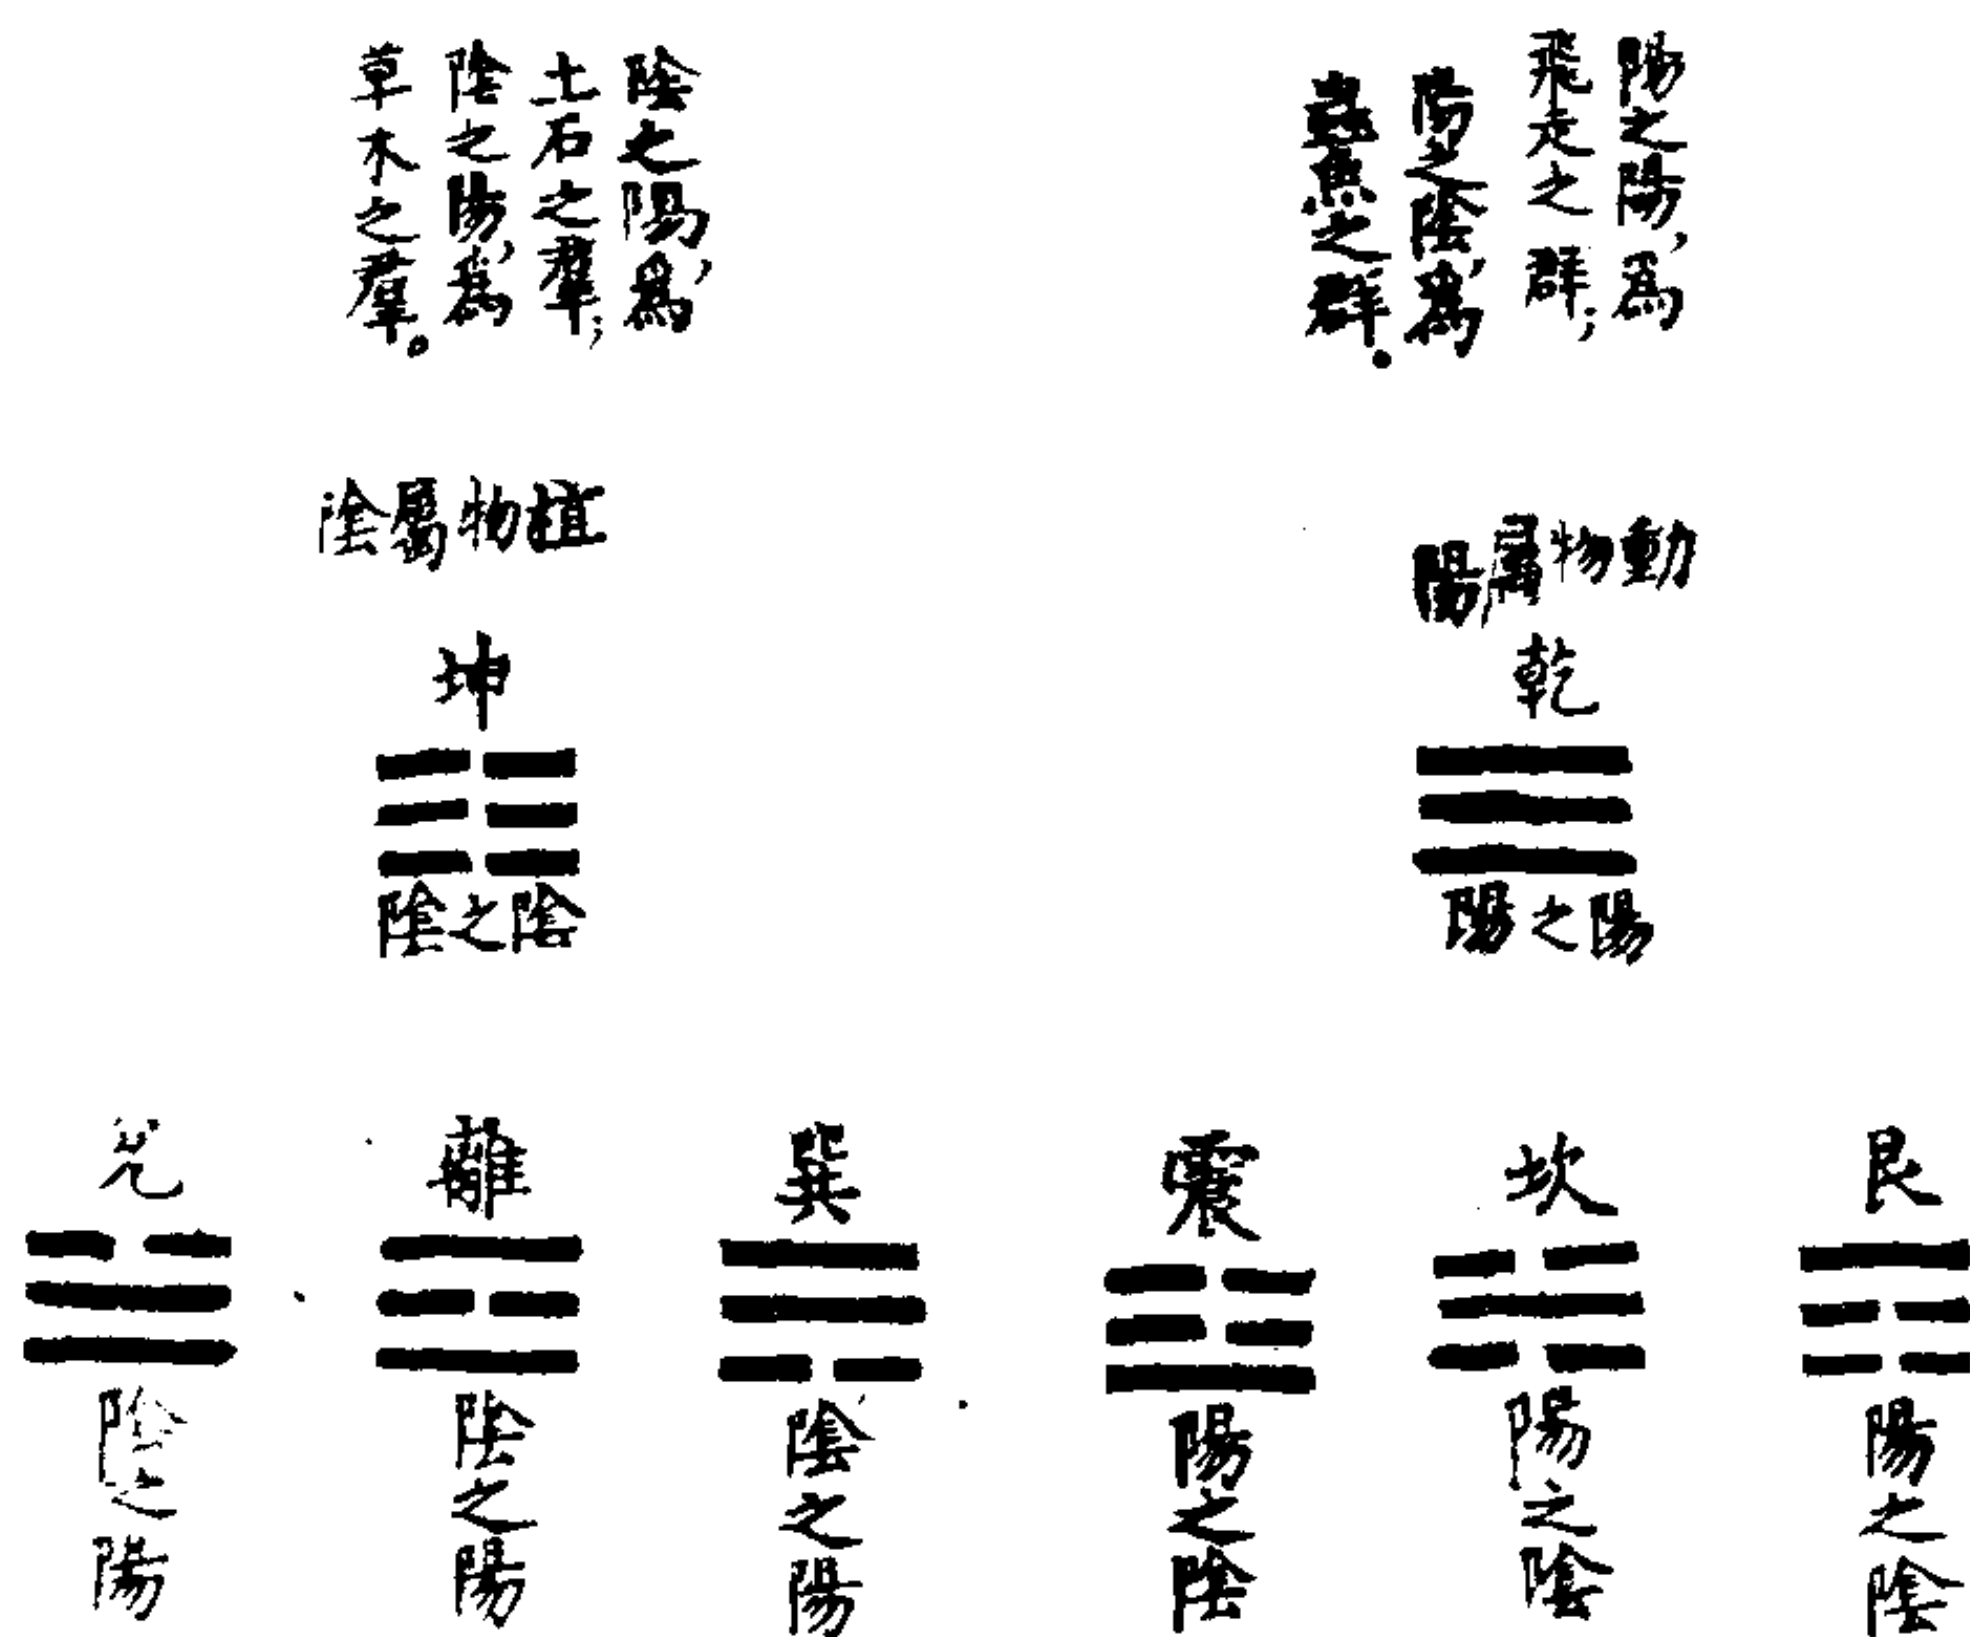 陽之陽，爲
飛走之群；
陽之陰，爲
蟲魚之群。
陰之陽，爲
土石之羣；
陰之陽，爲
草木之羣。
動物屬陽
植物屬陰
乾
陽之陽
坤
陰之陰
艮
陽之陰
坎
陽之陰
震
陽之陰
巽
陰之陽
離
陰之陽
兌
陰之陽